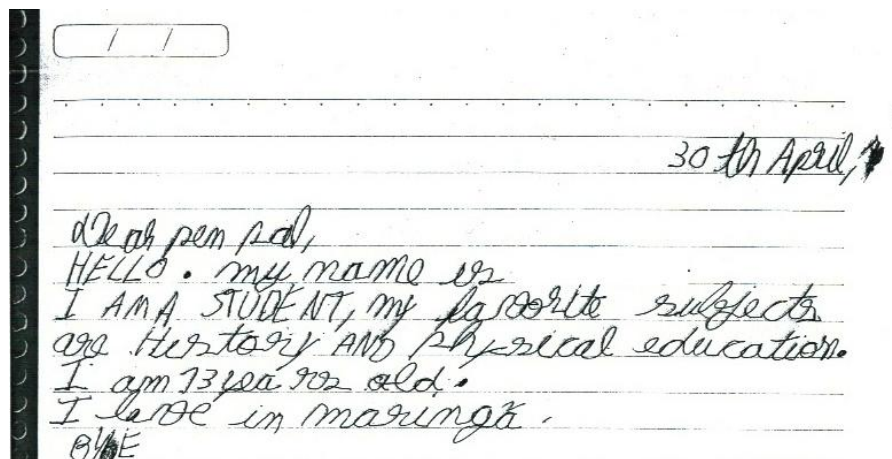 / /
30th April,
Dear pen pal,
HELLO. my name is
I AM A STUDENT, my favorite subjects
are History AND Physical education.
I am 13 years old.
I live in maringá.
BYE